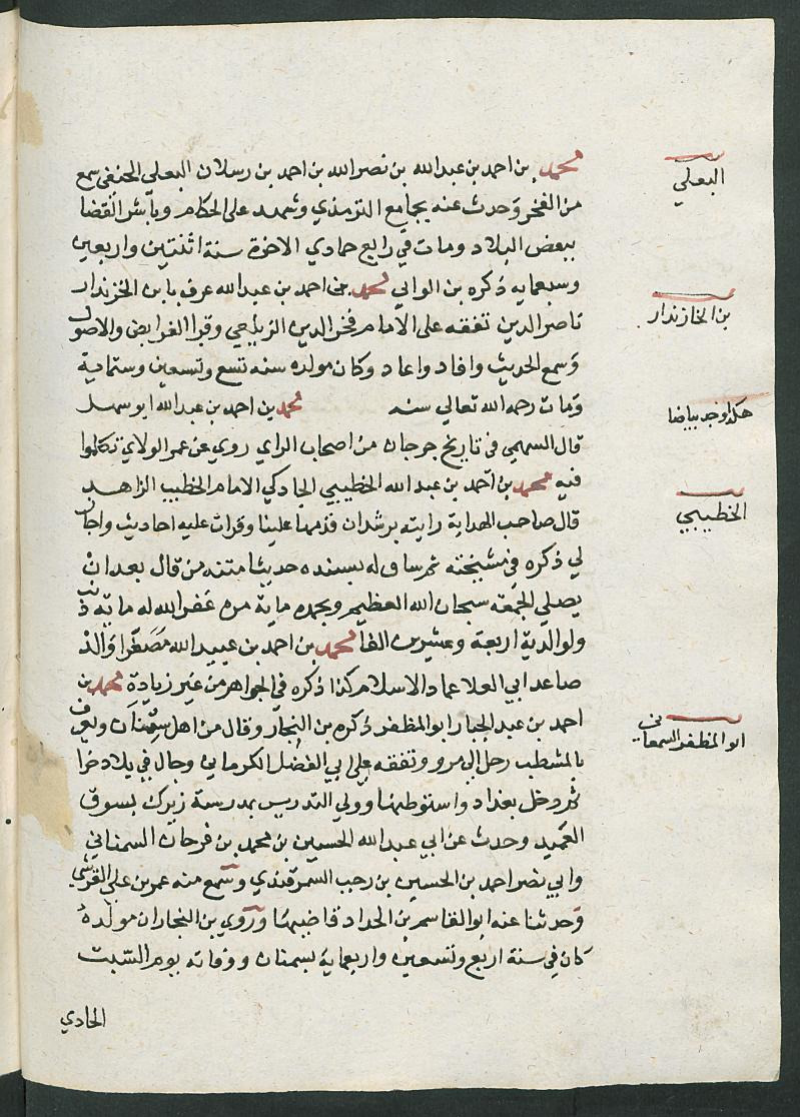 محمد بن احمد بن عبد الله بن نصر الله بن احمد بن رسلان البعلي الحنفي سمع
البعلي
من الفخر وحدث عنه بجامع الترمذي وشهد على الحكام وباشر القضا
ببعض البلاد ومات في رابع جمادي الاخرة سنة اثنتين واربعين
وسبعمايه ذكره بن الوالي محمد بن احمد بن عبد الله عرف بابن الخزندار
بن الخازندار
ناصر الدين تفقه على الامام فخر الدين الزيلعي وقرا الفرايض والاصول
وسمع الحديث وافاد واعاد وكان مولده سنه تسع وتسعين وستماية
ومات رحمه الله تعالي سنه محمد بن احمد بن عبد الله ابو سهل
هكذا وجد بياضا
قال السهمي في تاريخ جرجان من اصحاب الراي روي عن عمر الولاي تكلموا
فيه محمد بن احمد بن عبد الله الخطيبي الجادكي الامام الخطيب الزاهد
الخطيبي
قال صاحب الهداية رايته برشدان قدمها علينا وقرات عليه احاديث واجاز
لي ذكره في مشيخته ثم ساق له بسنده حديثا متنه من قال بعد ان
يصلي الجمعة سبحان الله العظيم وبحمده ماية مره غفر الله له ماية ذنب
ولوالدية اربعة وعشرين الفا محمد بن احمد بن عبيد الله مصغرا والد
صاعد ابي العلا عماد الاسلام كذا ذكره في الجواهر من غير زيادة محمد بن
احمد بن عبد الجبار ابو المظفر ذكره بن النجار وقال من اهل سمنان ويعرف
ابو المظفر السمعاني
بالمشطب رحل الى مرو وتفقه على ابي الفضل الكرماني وجال في بلاد خرا
ثم دخل بغداد واستوطنها وولي التدريس بمدرسة زيرك بسوق
العميد وحدث عن ابي عبد الله الحسين بن محمد بن فرحان السمناني
وابي نصر احمد بن الحسين بن رجب السمرقندي وسمع منه عمر بن علي القرشي
وحدثنا عنه ابو القاسم بن الحداد قاضيها وروي بن النجار ان مولده
كان في سنة اربع وتسعين واربعماية بسمنان ووفاته يوم السبت
الحادي